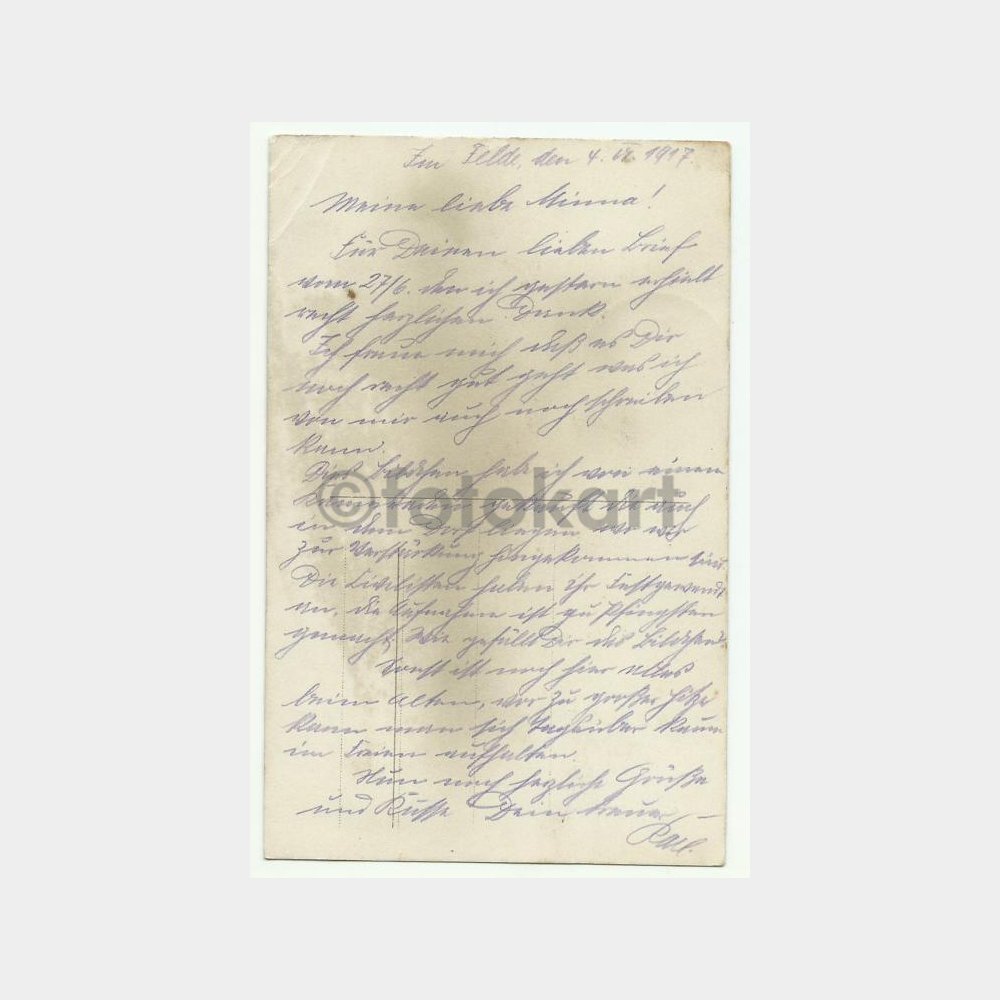 Im Felde, den 4. 1917.
Meine liebe Minna!
Für Deinen lieben Brief
vom 27/6. den ich gestern erhielt
recht herzlichen Dank.
Ich freue mich daß es Dir
noch recht gut geht was ich
von mir auch noch schreiben
kann.
Dies Bildchen habe ich von einem
Kameraden gekauft der auch
in dem Dorf liegen wo wir
zur Verstärkung hingekommen sind
Die Civilisten haben ihr Festgewand
an, die Aufnahme ist zu Pfingsten
gemacht, Wie gefällt Dir das Bildchen?
Sonst ist noch hier alles
beim Alten, vor zu großer Hitze
kann man sich tagsüber kaum
im Freien aufhalten.
Nun noch herzliche Grüße
und Küsse Dein treuer
Paul.
©fotokart